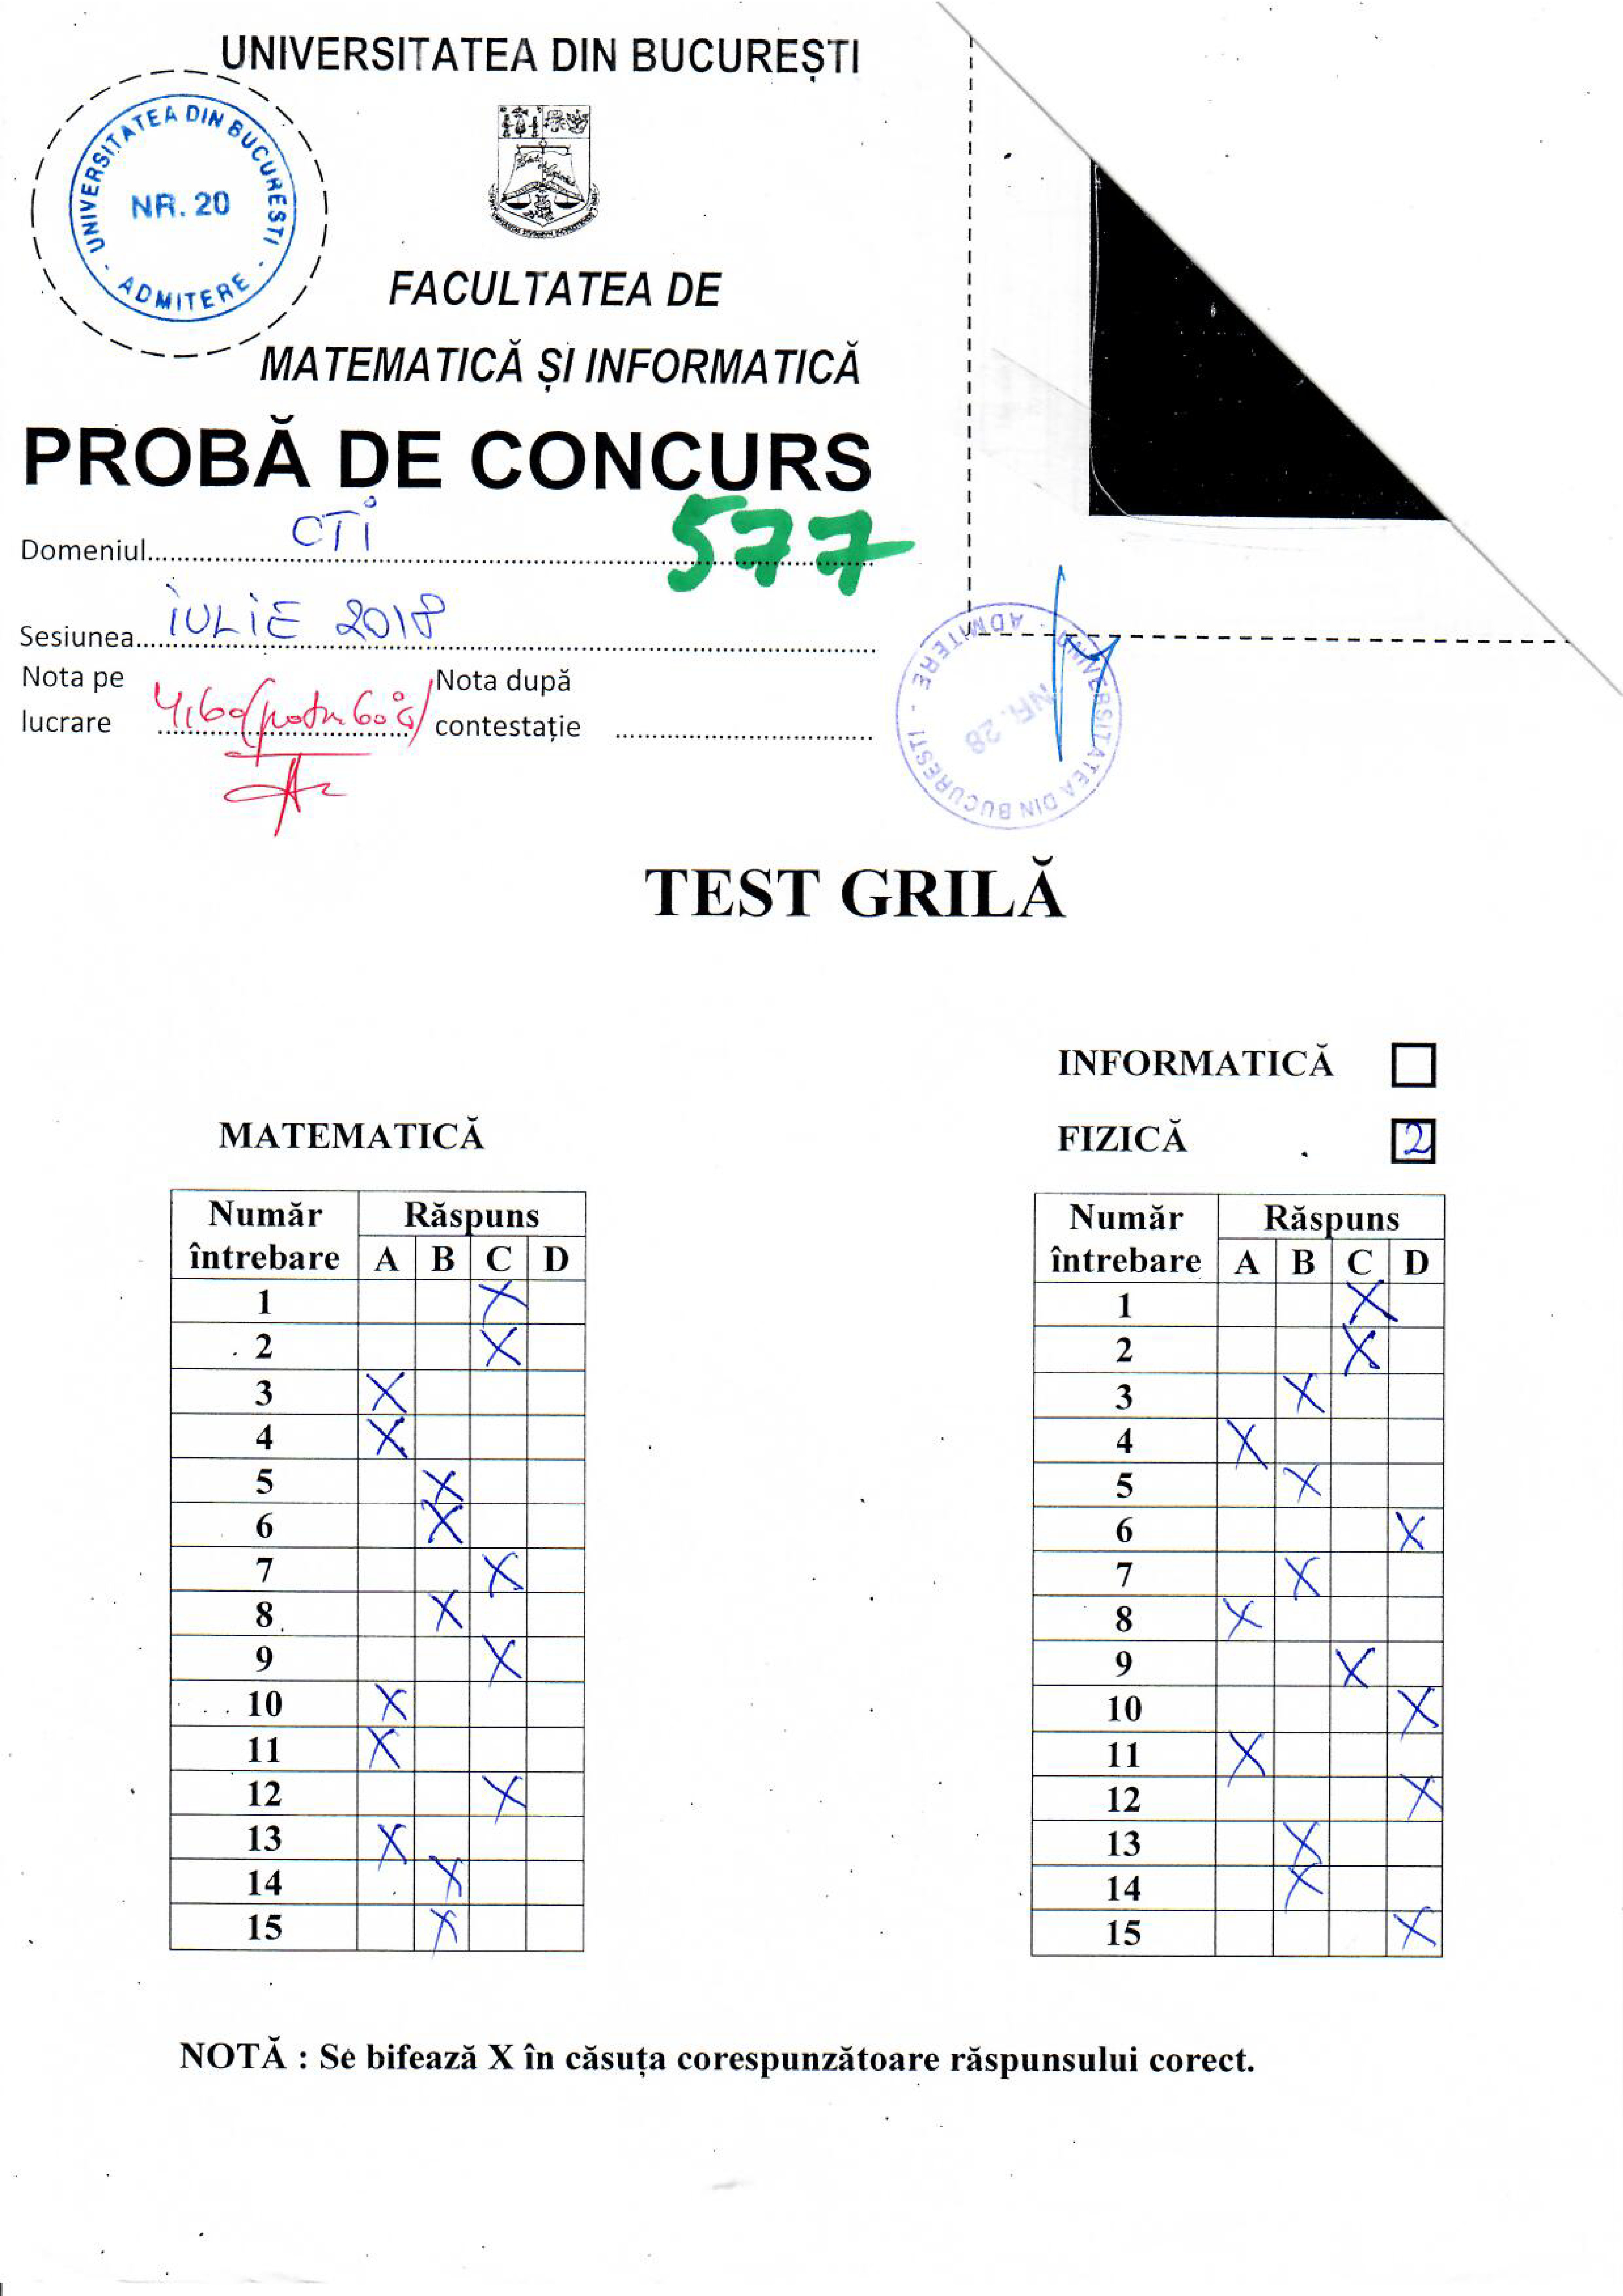 UNIVERSITATEA DIN BUCUREȘTI
UNIVERSITATEA DIN BUCURESTI - ADMITERE -
NR. 20
FACULTATEA DE
MATEMATICĂ ȘI INFORMATICĂ
PROBĂ DE CONCURS
Domeniul CTI 577
Sesiunea IULIE 2018
Nota pe lucrare 4,60 Nota după contestație
UNIVERSITATEA DIN BUCURESTI - ADMITERE -
NR. 28
TEST GRILĂ
INFORMATICĂ
MATEMATICĂ
FIZICĂ 2
Număr întrebare Răspuns
A B C D
1 X
2 X
3 X
4 X
5 X
6 X
7 X
8 X
9 X
10 X
11 X
12 X
13 X
14 X
15 X
Număr întrebare Răspuns
A B C D
1 X
2 X
3 X
4 X
5 X
6 X
7 X
8 X
9 X
10 X
11 X
12 X
13 X
14 X
15 X
NOTĂ : Se bifează X în căsuța corespunzătoare răspunsului corect.